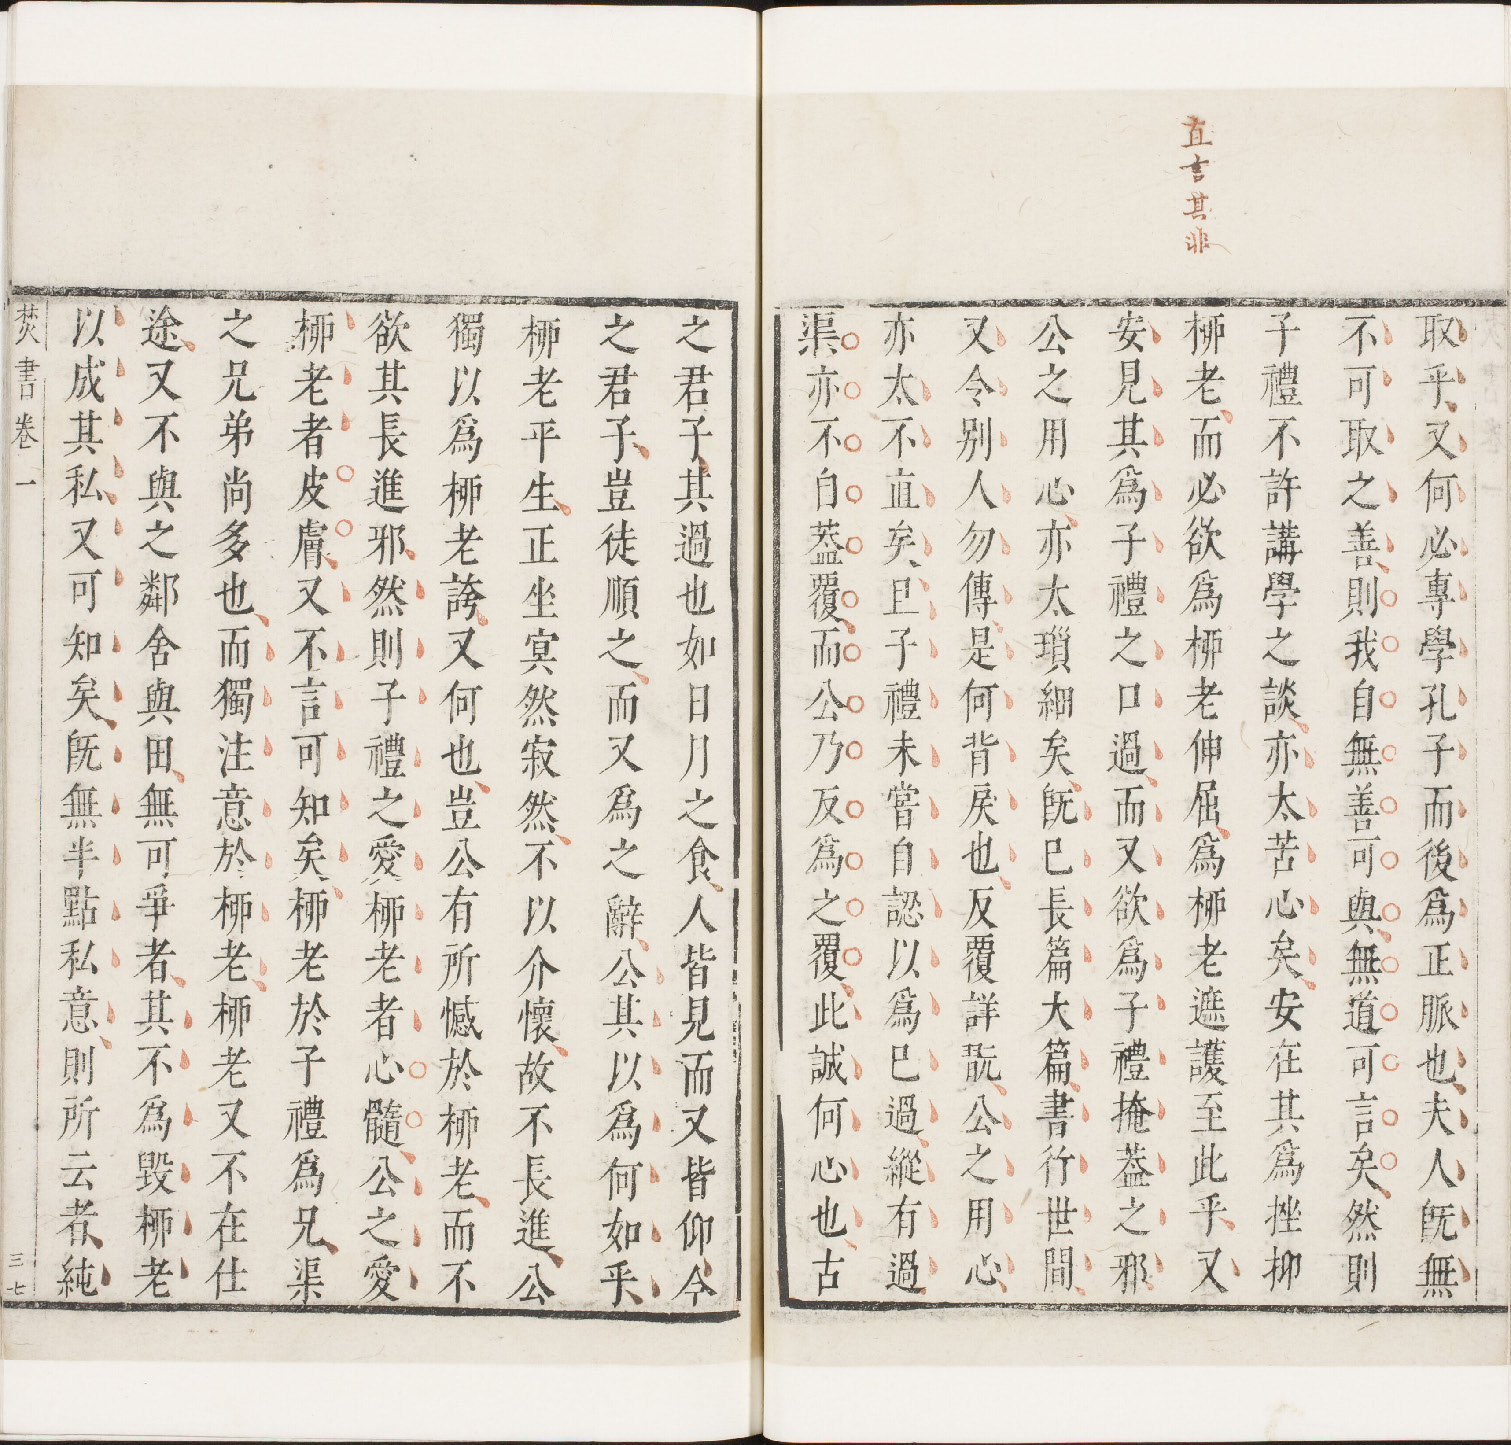 直言其非
取乎又何必專學孔子而後爲正脈也夫人旣無
不可取之善則我自無善可與無道可言矣然則
子禮不許講學之談亦太苦心矣安在其爲挫抑
桺老而必欲爲桺老伸屈爲桺老遮護至此乎又
安見其爲子禮之口過而又欲爲子禮掩葢之邪
公之用心亦太瑣細矣旣已長篇大篇書行世間
又令别人勿傳是何背戾也反覆詳翫公之用心
亦太不直矣且子禮未嘗自認以爲已過縱有過
渠亦不自葢覆而公乃反爲之覆此誠何心也古
之君子其過也如日月之食人皆見而又皆仰今
之君子豈徒順之而又爲之辭公其以爲何如乎
桺老平生正坐㝠然寂然不以介懷故不長進公
獨以爲桺老誇又何也豈公有所憾於桺老而不
欲其長進邪然則子禮之愛桺老者心髓公之愛
桺老者皮膚又不言可知矣桺老於子禮爲兄渠
之兄弟尚多也而獨注意於桺老桺老又不在仕
途又不與之鄰舍與田無可爭者其不爲毀桺老
以成其私又可知矣旣無半點私意則所云者純
焚書卷一
三七